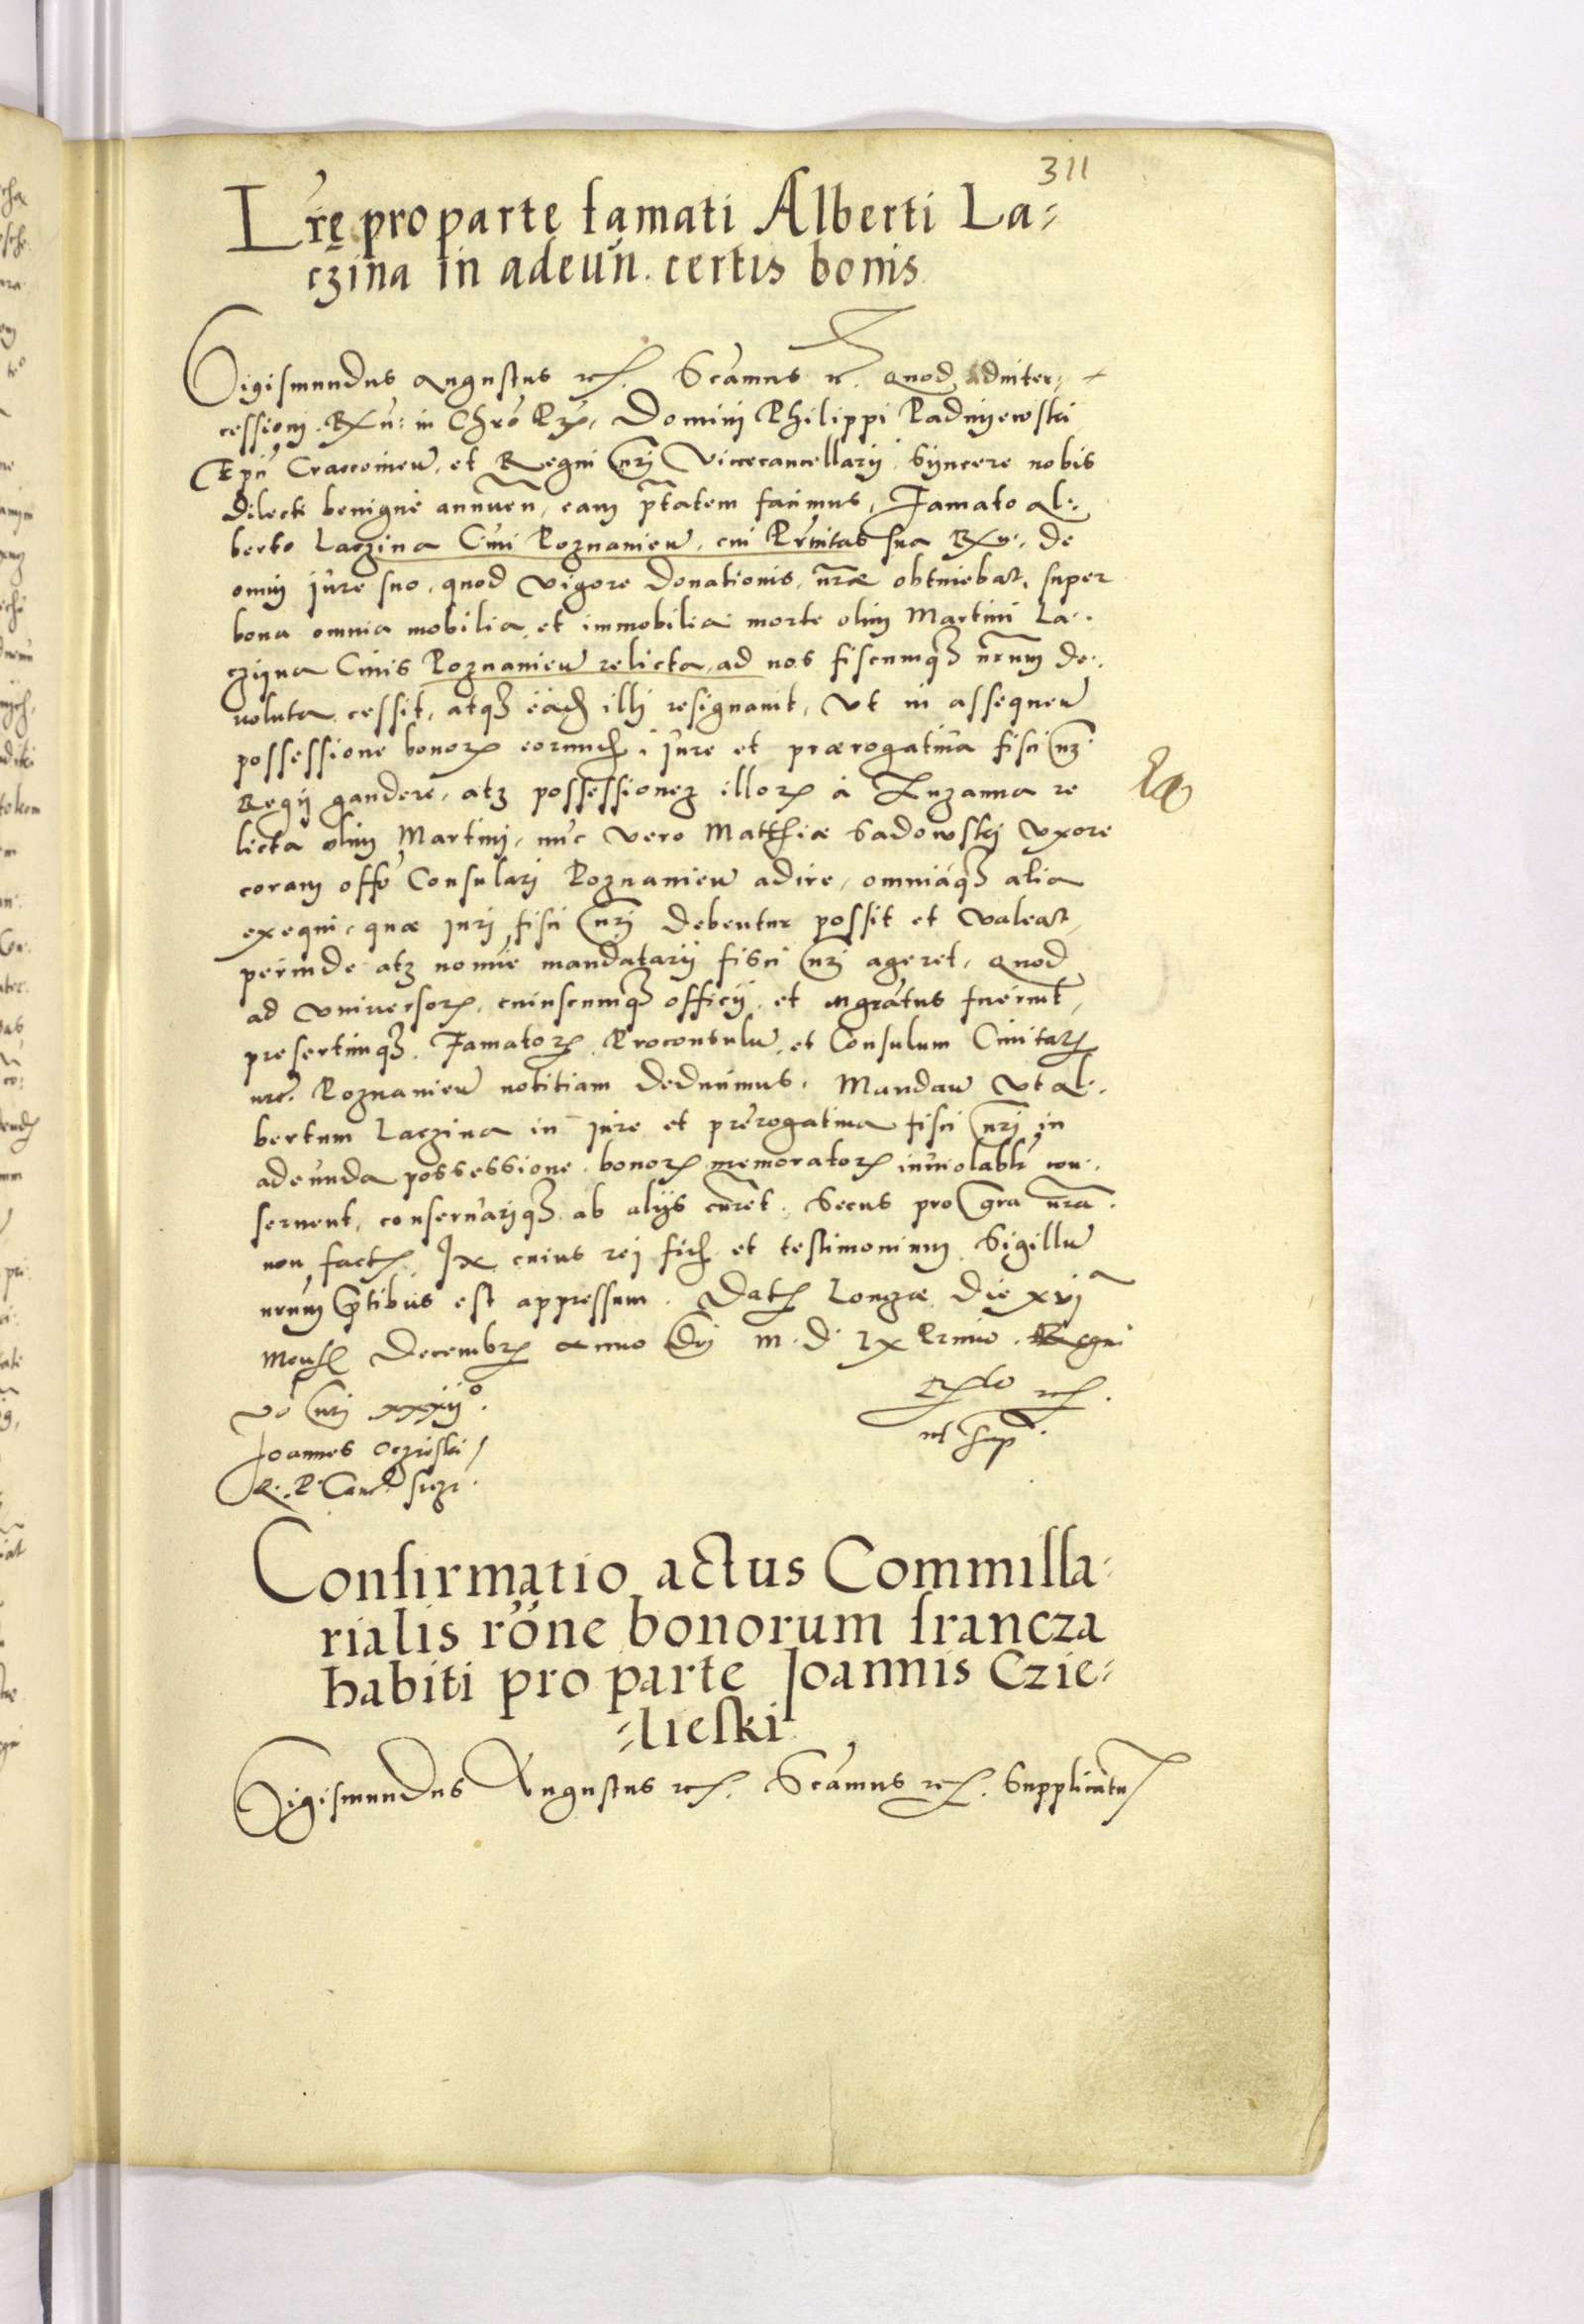 311
Lrę pro parte famati Alberti La⸗
czina in adeun. certis bonis
Sigismundus Augustus etc. Scamus etc. Quod ad inter⸗
cessionē Rx in Chro Domini Philippi Padniewski
Epū Cracovien, et Regni nri Vicecancellarij Syncere nobis
dilecti benigne annuen, eam ptatem facimus, Famato Al⸗
berto Laczina Ciui Poznanien, cui Prnitas sua Rx de
omni jure suo, quod vigore donationis nræ obtinebat, super
bona omnia mobilia et immobilia morte olim Martini La⸗
czyna Ciuis Poznanien relicta, ad nos fiscumq nrum de⸗
uoluta cessit, atq illi resignauit, Vt in assequen
possessione bonor eorund jure et prærogatiua fisci nri
Regij gaudere, atq possessionem illor à Zuzanna re
licta olim Martini, nuc vero Matthiæ Sadowskj Vxore
coram offo Consulari Poznanien adire, omniaq alia
exequi, quæ juri fisci nri debentur possit et valeat,
perinde atq nomie mandatarij fisci nri ageret, Quod
ad vniuersor, cuiuscumq officij et fuerint,
presertimq Famator Proconsulu et Consulum Ciuitat
nre Poznanien notitiam deducimus. Mandan Vt Al⸗
bertum Laczina in jure et prerogatiua fisci nri in
adeunda possessione bonor memorator inuiolabli con⸗
seruent, conseruariq ab alijs curet. Secus pro gra nra
non fact. In cuius rej fid et testimonium Sigillu
nrum pntibus est appressum. Dat Lonzæ Die xvj
Mens Decembr Anno Dni M. D. Lx Primo. Regni
vo nri xxxij°.
Joannes Oczieski
R. P. Canc sszt
ut sup
Confirmatio actus Commissa⸗
rialis röne bonorum francza
habiti pro parte Joannis Czie⸗
⸗lieski
Sigismundus Augustus etc. Scamus etc. Supplicatu